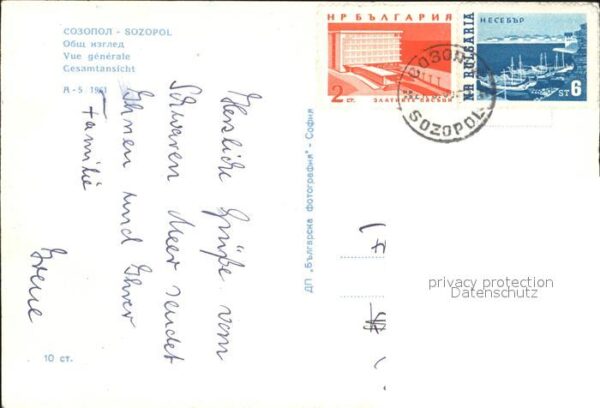 СОЗОПОЛ - SOZOPOL
Общ изглед
Vue générale
Gesamtansicht
А-5 1961
Herzliche Grüße vom
Schwarzen Meer sendet
Ihnen und Ihrer
Familie
Irene
10 ст.
ДП „Българска фотография" - София
НР БЪЛГАРИЯ
2 СТ.
ЗЛАТНИТЕ ПЯСЪЦИ
НЕСЕБЪР
NR BULGARIA
ST 6
СОЗОПОЛ
SOZOPOL
privacy protection
Datenschutz